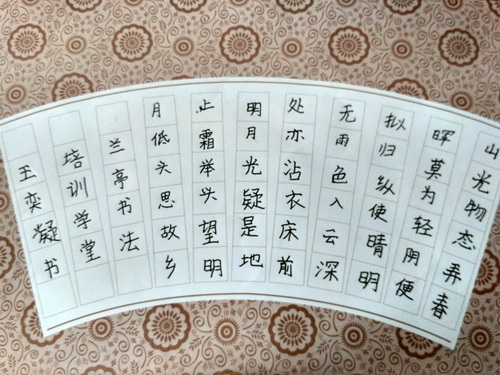 山光物态弄春
晖莫为轻阴便
拟归纵使晴明
无雨色入云深
处亦沾衣床前
明月光疑是地
上霜举头望明
月低头思故乡
兰亭书法
培训学堂
王奕凝书